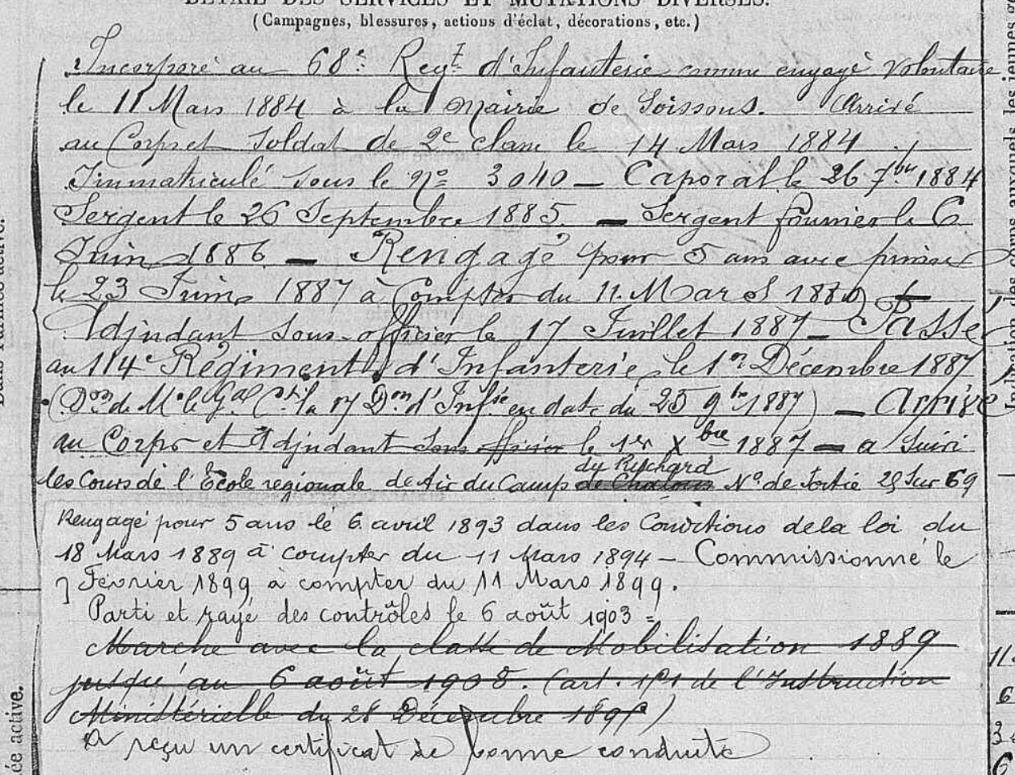 DÉTAIL DES SERVICES ET MUTATIONS DIVERSES.
(Campagnes, blessures, actions d'éclat, décorations, etc.)
Incorporé au 68e Regt d'Infanterie comme engagé volontaire
le 11 Mars 1884 à la Mairie de Soissons. Arrivé
au Corps et Soldat de 2e classe le 14 Mars 1884
Immatriculé sous le No 3040 — Caporal le 26 7bre 1884
Sergent le 26 Septembre 1885 — Sergent fourrier le 6
Juin 1886 — Rengagé pour 5 ans avec prime
le 23 Juin 1887 à compter du 11 Mars
Adjudant sous-officier le 17 Juillet 1887 — Passé
au 114e Régiment d'Infanterie le 1er Décembre 1887
(Don de Mr le Gal Ct la 17 Don d'Infie en date du 25 9bre 1887) — Arrivé
au Corps et Adjudant sous officier le 1er Xbre 1887 — a suivi
du Ruchard
les Cours de l'École régionale de Tir du Camp de Chalons No de Sortie 29 Sur 69
Rengagé pour 5 ans le 6 avril 1893 dans les Conditions de la loi du
18 Mars 1889 à compter du 11 Mars 1894 — Commissionné le
7 Février 1899 à compter du 11 Mars 1899.
Parti et rayé des contrôles le 6 août 1903 =
Marche avec la classe de Mobilisation 1889
jusqu'au 6 août 1908. (art. 191 de l'Instruction
Ministérielle du 28 Décembre 1895)
A reçu un certificat de bonne conduite
ée active.